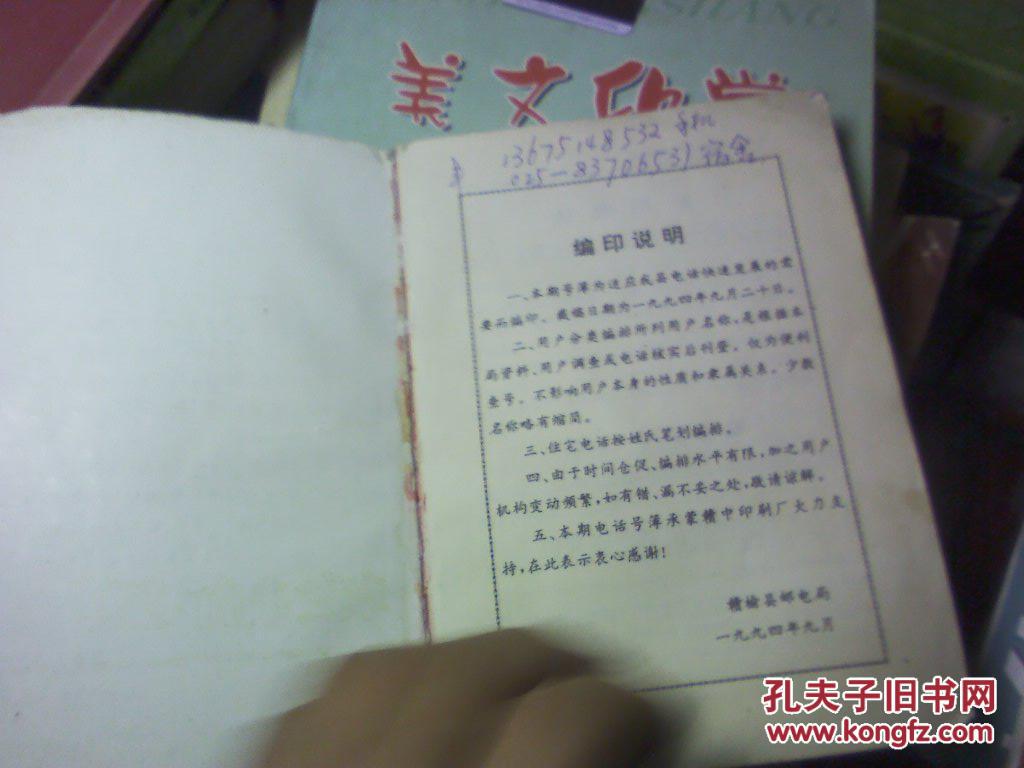 SHANG
美文欣赏
13675148532 手机
025—83706531 宿舍
编印说明
一、本期号簿为适应我县电话快速发展的需
要而编印。截稿日期为一九九四年九月二十日。
二、用户分类编排所列用户名称,是根据本
局资料、用户调查或电话核实后刊登。仅为便利
查号。不影响用户本身的性质和隶属关系。少数
名称略有缩简。
三、住宅电话按姓氏笔划编排。
四、由于时间仓促、编排水平有限,加之用户
机构变动频繁,如有错、漏不妥之处,敬请谅解。
五、本期电话号簿承蒙赣中印刷厂大力支
持,在此表示衷心感谢!
赣榆县邮电局
一九九四年九月
孔夫子旧书网
www.kongfz.com